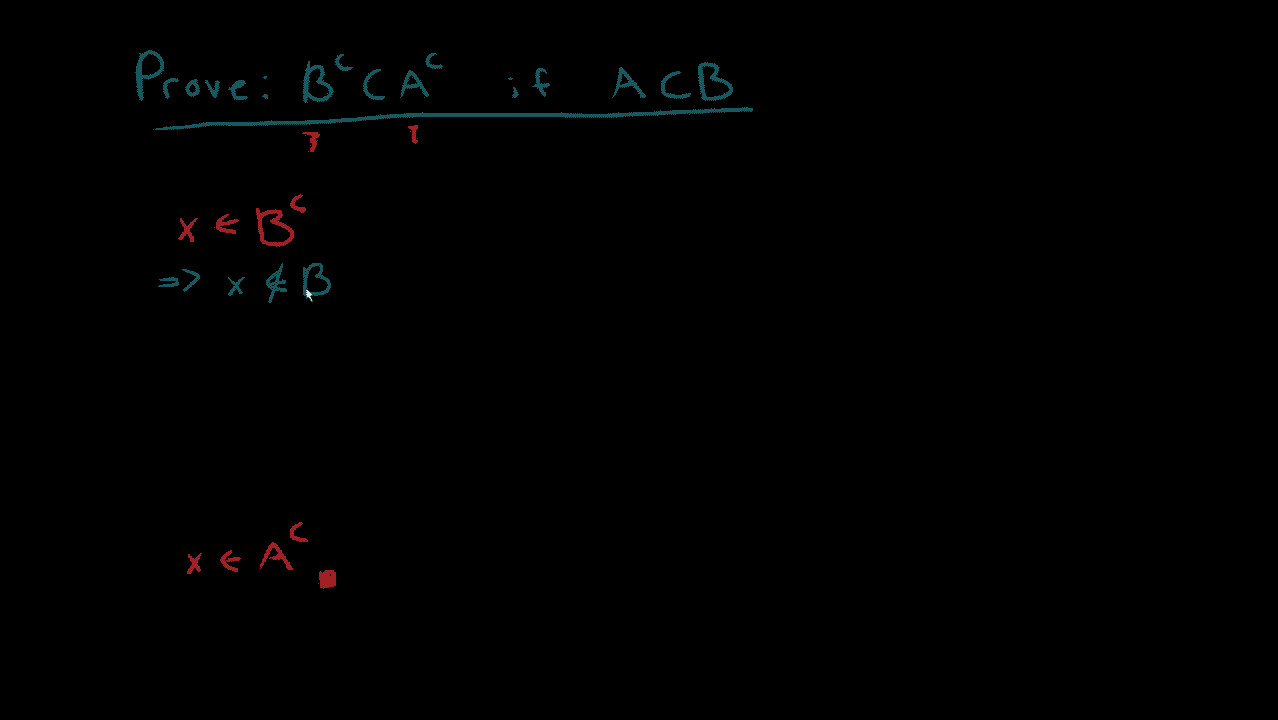 Prove: Bᶜ ⊂ Aᶜ if A ⊂ B
x ∈ Bᶜ
=> x ∉ B
x ∈ Aᶜ ■